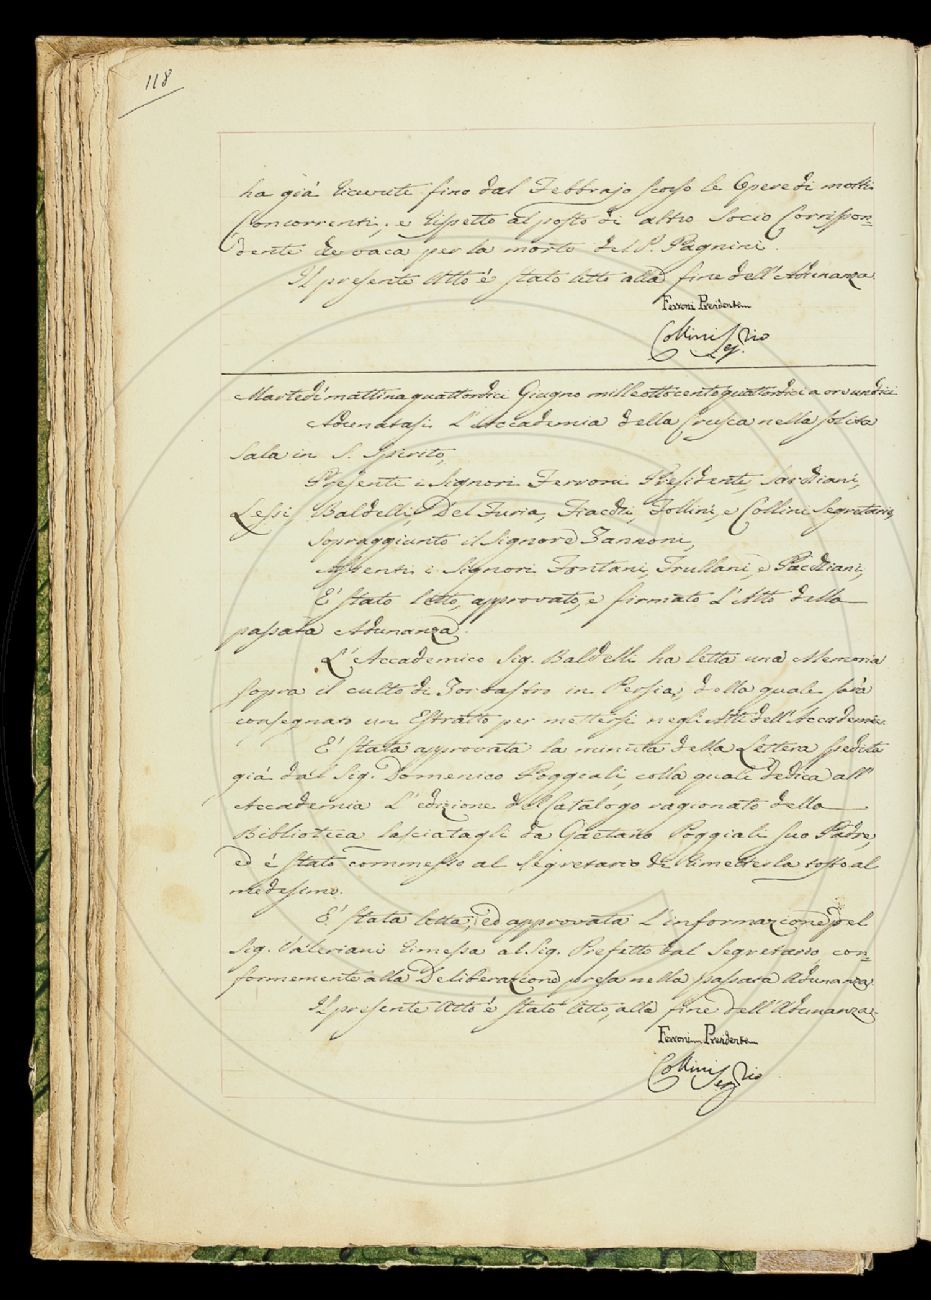 118
ha già ricevute fino dal Febbrajo scorso le Opere di molti
Concorrenti, e rispetto al posto di altro Socio Corrispon=
dente che vaca per la morte del P. Pagnini.
Il presente Atto è stato letto alla fine dell'Adunanza.
Ferroni Presidente
Collini Seg.rio
Martedì mattina quattordici Giugno milleottocentoquattordici a ore undici
Adunatasi l'Accademia della Crusca nella solita
Sala in S. Spirito,
Presenti i Signori Ferroni Presidente, Sarchiani,
Lessi, Baldelli, Del Furia, Fiacchi, Follini, e Collini Segretario,
Sopraggiunto il Signore Zannoni,
Assenti i Signori Fontani, Frullani, e Pacchiani,
E' stato letto, approvato, e firmato l'Atto della
passata Adunanza.
L'Accademico Sig. Baldelli ha letta una Memoria
sopra il culto di Zoroastro in Persia, della quale sarà
consegnato un Estratto per mettersi negli Atti dell'Accademia.
E' stata approvata la minuta della Lettera spedita
già dal Sig. Domenico Poggiali, colla quale dedica all'
Accademia l'edizione del Catalogo ragionato della
Biblioteca lasciatagli da Gaetano Poggiali suo Padre,
ed è stato commesso al Segretario di rimettersela tosto al
medesimo.
E' stata letta, ed approvata l'informazione pel
Sig. Valeriani rimessa al Sig. Prefetto dal Segretario, con=
formemente alla Deliberazione presa nella passata Adunanza.
Il presente Atto è stato letto, alla fine dell'Adunanza.
Ferroni Presidente
Collini Seg.rio